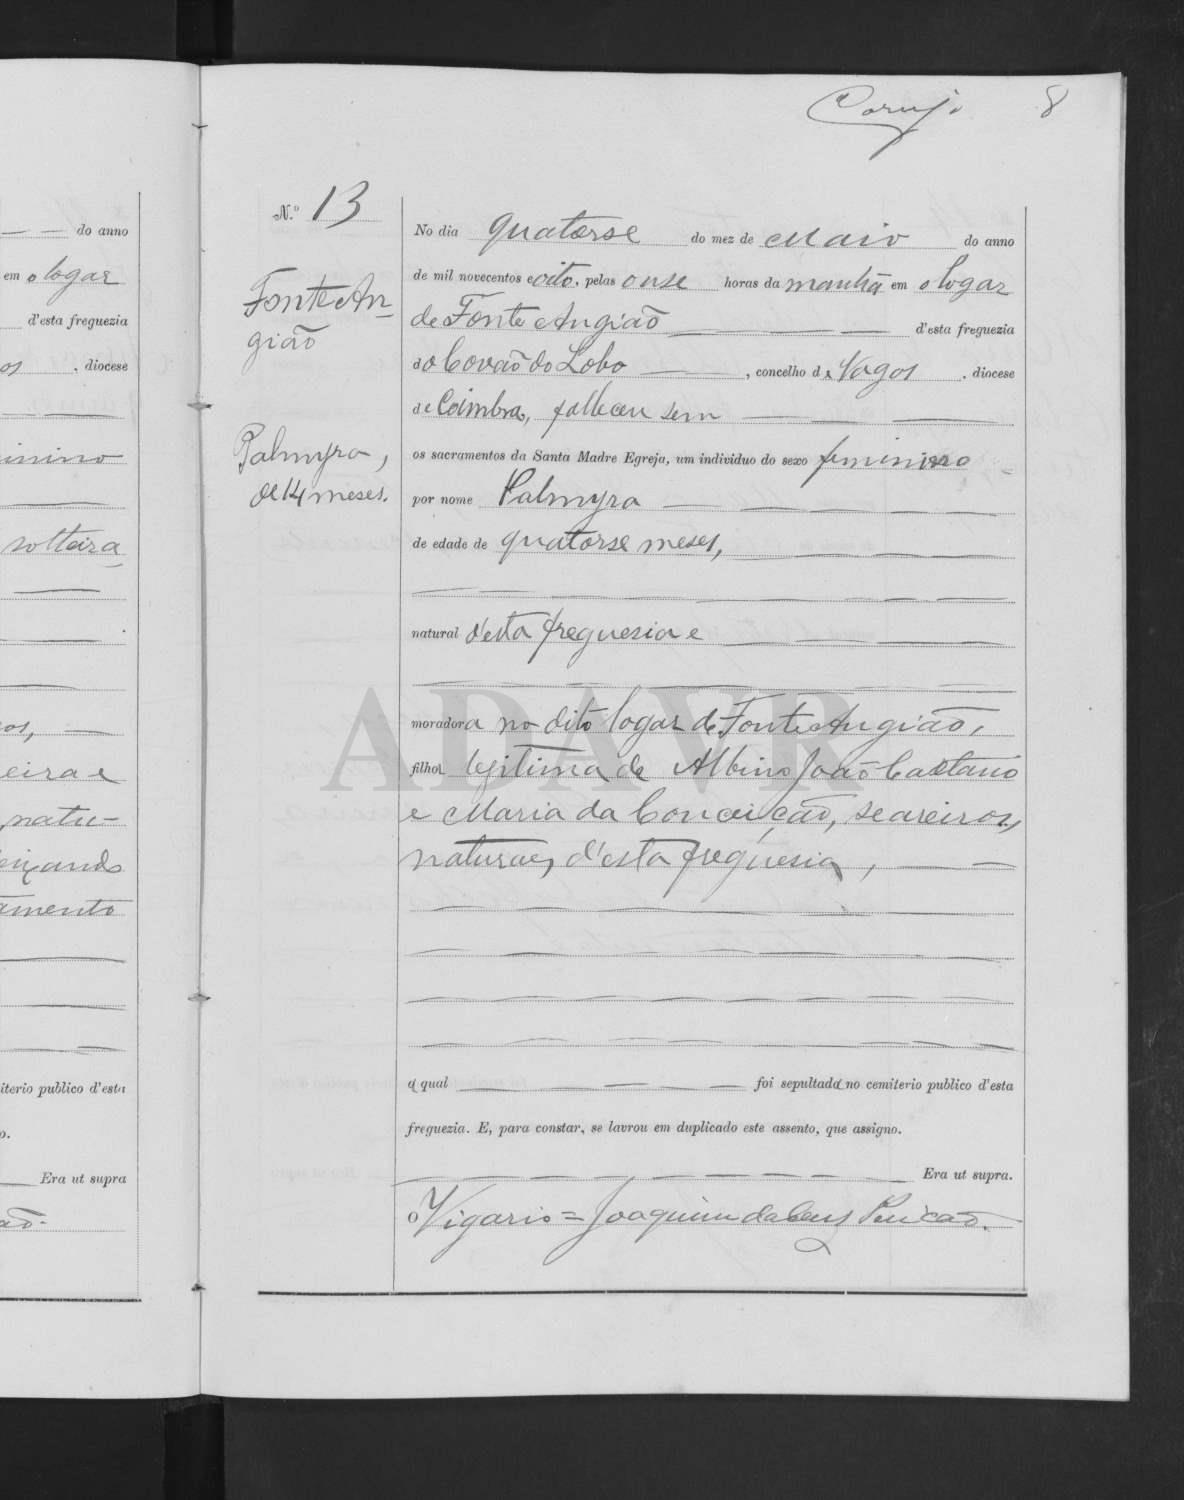 do anno
em o logar
d'esta freguezia
os , diocese
inino
solteira
os,
eira e
natu-
eiçando
amento
iterio publico d'esta
o.
Era ut supra
ão.
8
N.º 13
Fonte An-
gião
Palmyra,
de 14 meses.
No dia quatorse do mez de Maio do anno
de mil novecentos e oito, pelas onse horas da manhã em o logar
de Fonte Angião d'esta freguezia
do Covão do Lobo , concelho de Vagos , diocese
de Coimbra, falleceu sem
os sacramentos da Santa Madre Egreja, um individuo do sexo feminino
por nome Palmyra
de edade de quatorse meses,
natural d'esta freguesia e
moradora no dito logar de Fonte Angião,
filha legitima de Albino João Caetano
e Maria da Conceição, seareiros,
naturaes d'esta freguesia,
a qual foi sepultada no cemiterio publico d'esta
freguezia. E, para constar, se lavrou em duplicado este assento, que assigno.
Era ut supra.
O Vigario = Joaquim da
ADAVR